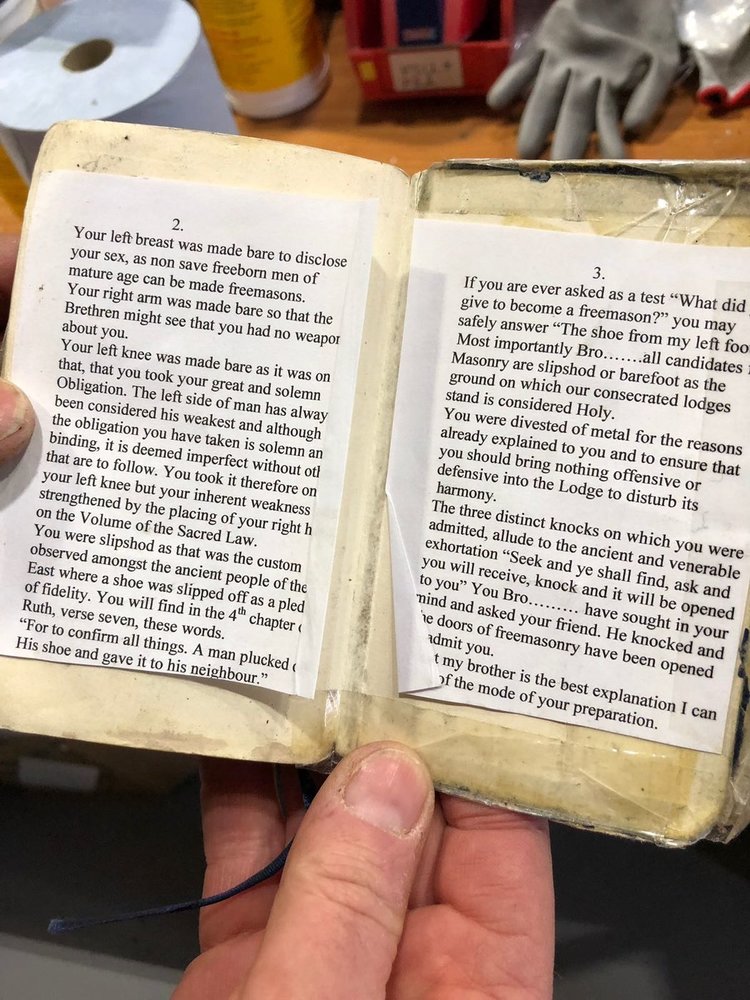 2.
Your left breast was made bare to disclose
your sex, as non save freeborn men of
mature age can be made freemasons.
Your right arm was made bare so that the
Brethren might see that you had no weapon
about you.
Your left knee was made bare as it was on
that, that you took your great and solemn
Obligation. The left side of man has alway
been considered his weakest and although
the obligation you have taken is solemn an
binding, it is deemed imperfect without oth
that are to follow. You took it therefore on
your left knee but your inherent weakness
strengthened by the placing of your right h
on the Volume of the Sacred Law.
You were slipshod as that was the custom
observed amongst the ancient people of the
East where a shoe was slipped off as a pled
of fidelity. You will find in the 4th chapter
Ruth, verse seven, these words.
“For to confirm all things. A man plucked
His shoe and gave it to his neighbour.”
3.
If you are ever asked as a test “What did
give to become a freemason?” you may
safely answer “The shoe from my left foo
Most importantly Bro.......all candidates
Masonry are slipshod or barefoot as the
ground on which our consecrated lodges
stand is considered Holy.
You were divested of metal for the reasons
already explained to you and to ensure that
you should bring nothing offensive or
defensive into the Lodge to disturb its
harmony.
The three distinct knocks on which you were
admitted, allude to the ancient and venerable
exhortation “Seek and ye shall find, ask and
you will receive, knock and it will be opened
to you” You Bro......... have sought in your
mind and asked your friend. He knocked and
he doors of freemasonry have been opened
admit you.
t my brother is the best explanation I can
of the mode of your preparation.